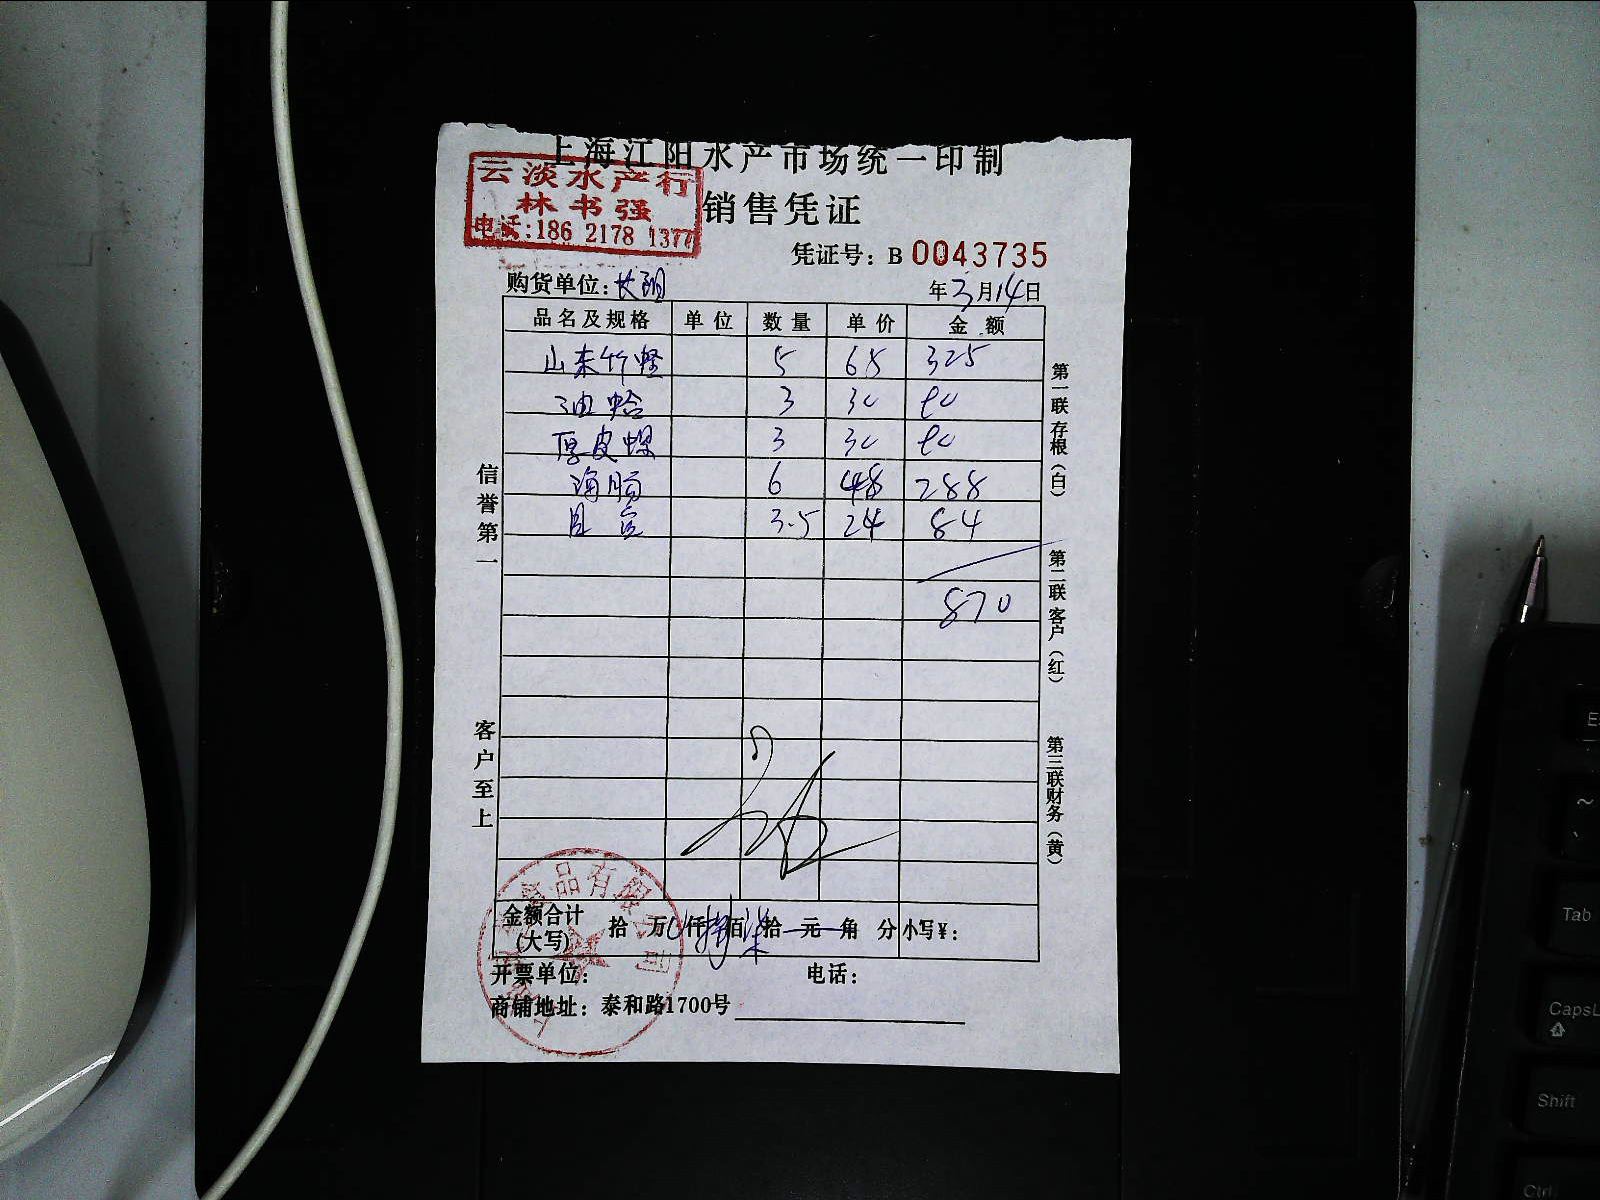 上海江阳水产市场统一印制
云淡水产行
林书强
电话:186 2178 1377
销售凭证
凭证号: B 0043735
购货单位:
年 3 月 14 日
品名及规格 单位 数量 单价 金额
山东竹蛏 5 65 325
油蛤 3 30 90
厚皮螺 3 30 90
海肠 6 48 288
3.5 24 84
870
信誉第一
客户至上
第一联存根(白)
第二联客户(红)
第三联财务(黄)
金额合计(大写) 拾 万 仟 捌 佰 柒 拾 元 角 分 小写¥:
开票单位: 电话:
商铺地址: 泰和路1700号
食品有限公司
Tab
CapsL
Shift
Ctrl